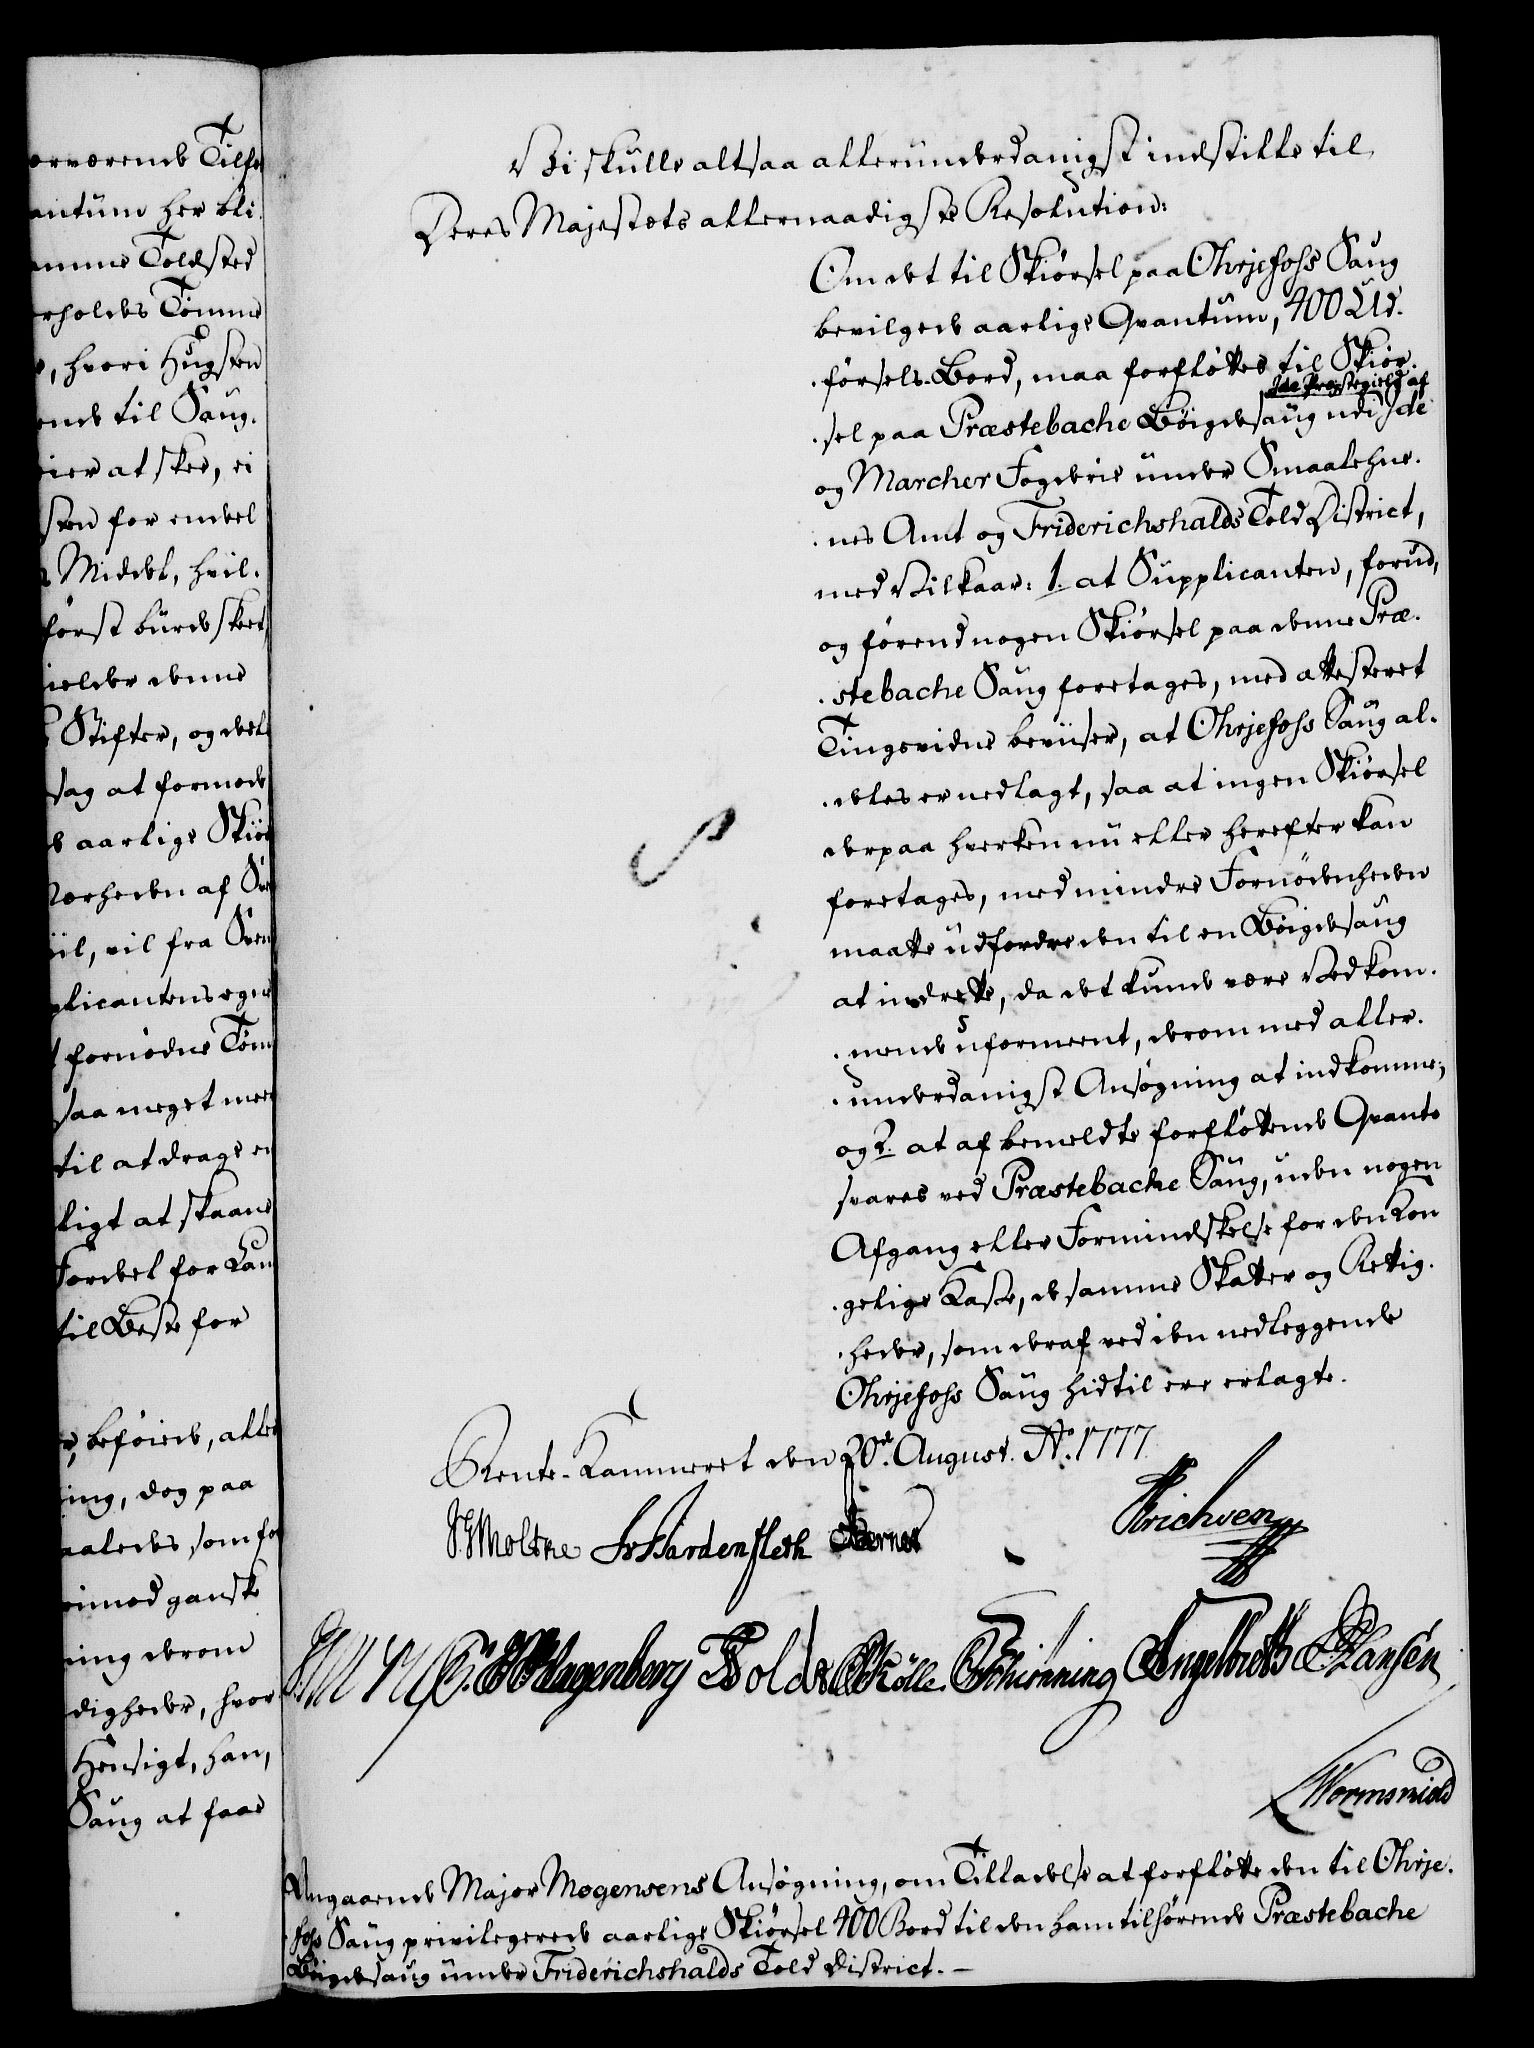 ærværende Tilfæ
antum her bli
amme Toldsted
rholdes Tømme
, hvori Hugsten
ende til Saug.
ier at skee, ei
sten for endeel
Middel, hvil.
først burde skeet,
ielder denne
Stifter, og vel
sag at formode
aarlige Skiør
Nærheden af Sve
iil, vil fra Sven
plicantens egne
fornødne Tøm
saa meget meer
til at drage en
ligt at skaane
Fordeel for Lan
til Beste for
beføiede, aller
ing, dog paa
aaledes som for
imod ganske
ning derom
digheder, hvor
Hensigt, han,
Saug at faae
Vi skulle altsaa allerunderdanigst indstille til
Deres Majestæts allernaadigste Resolution:
Om det til Skiørsel paa Ohrjefoss Saug
bevilgede aarlige Qvantum, 400 Ud.
førsels-Bord, maa forfløttes til Skiør.
Ide Præstegield af
sel paa Præstebache Bøigdesaug udi Ide
og Marcher Fogderie under Smaalehne.
nes Amt og Friderichshalds Told District,
med Vilkaar: 1. at Supplicanten, forud,
og førend nogen Skiørsel paa denne Præ.
stebache Saug foretages, med attesteret
Tingsvidne beviiser, at Ohrjefoss Saug al.
deles er nedlagt, saa at ingen Skiørsel
derpaa hverken nu eller herefter kan
foretages, med mindre Fornødenheden
maatte udfordre den til en Bøigdesaug
at indrette, da det kunde være Vedkom.
mende uformeent, derom med aller.
underdanigst Ansøgning at indkomme;
og 2. at af bemeldte forfløttende Qvanto
svares ved Præstebache Saug, uden nogen
Afgang eller Formindskelse for den Kon
gelige Kasse, de samme Skatter og Rettig.
heder, som deraf ved den nedleggende
Ohrjefoss Saug hidtil ere erlagte.
Rente-Kammeret den 20de August. Ao. 1777.
Moltke Hardenfleth Berner Erichsen
Hagenberg Bolds Kølle. Schiønning Engelbreth Hansen
Wormskiold
Angaaende Major Mogensens Ansøgning, om Tilladelse at forfløtte den til Ohrje.
foss Saug privilegerede aarlige Skiørsel 400 Bord til den ham tilhørende Præstebache
Bøigdesaug under Friderichshalds Told District. –